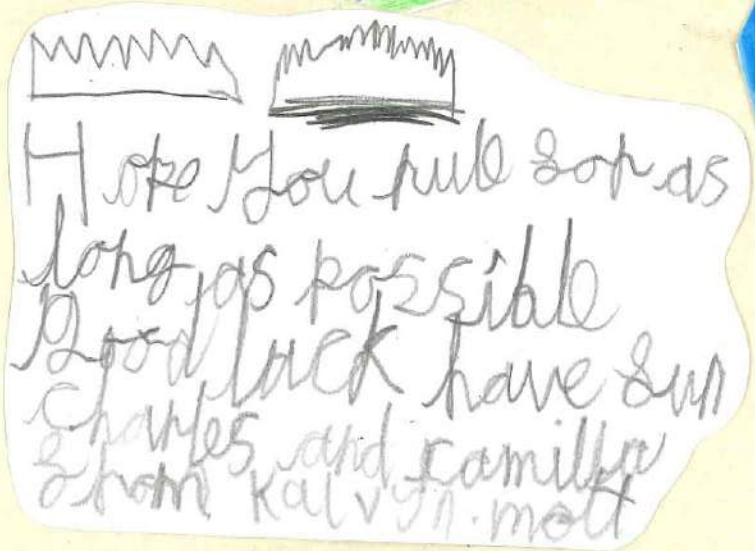 Hope You rule for as
long as possible
Good luck have fun
Charles and camilla
from Kalvyn. mott